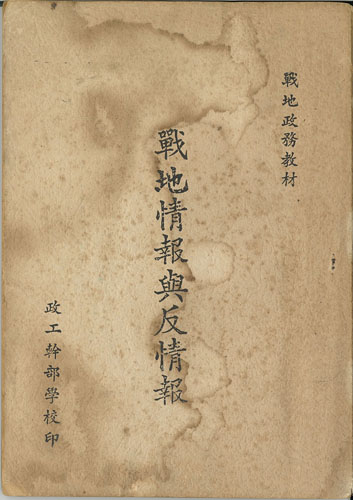 戰地政務教材
戰地情報與反情報
政工幹部學校印